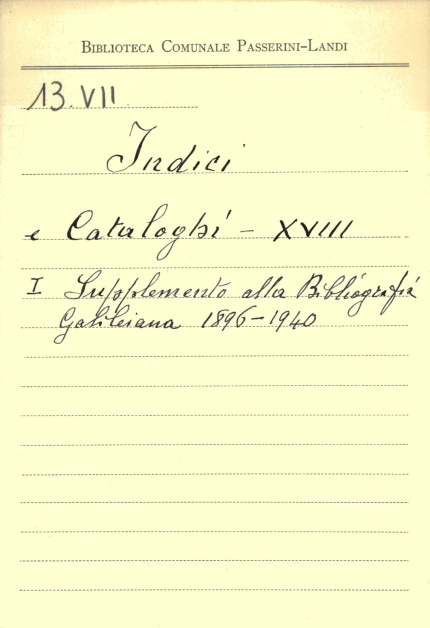 BIBLIOTECA COMUNALE PASSERINI-LANDI
13.VII
Indici
e Cataloghi - XVIII
I Supplemento alla Bibliografia
Galileiana 1896-1940